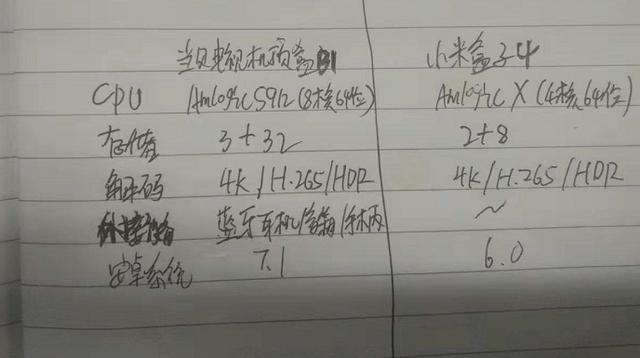 当贝电视机顶盒B1 小米盒子4
CPU Amlogic S912 (8核64位) Amlogic X (4核64位)
存储 3+32 2+8
解码 4K/H.265/HDR 4K/H.265/HDR
蓝牙耳机/音箱/手柄 ~
安卓系统 7.1 6.0